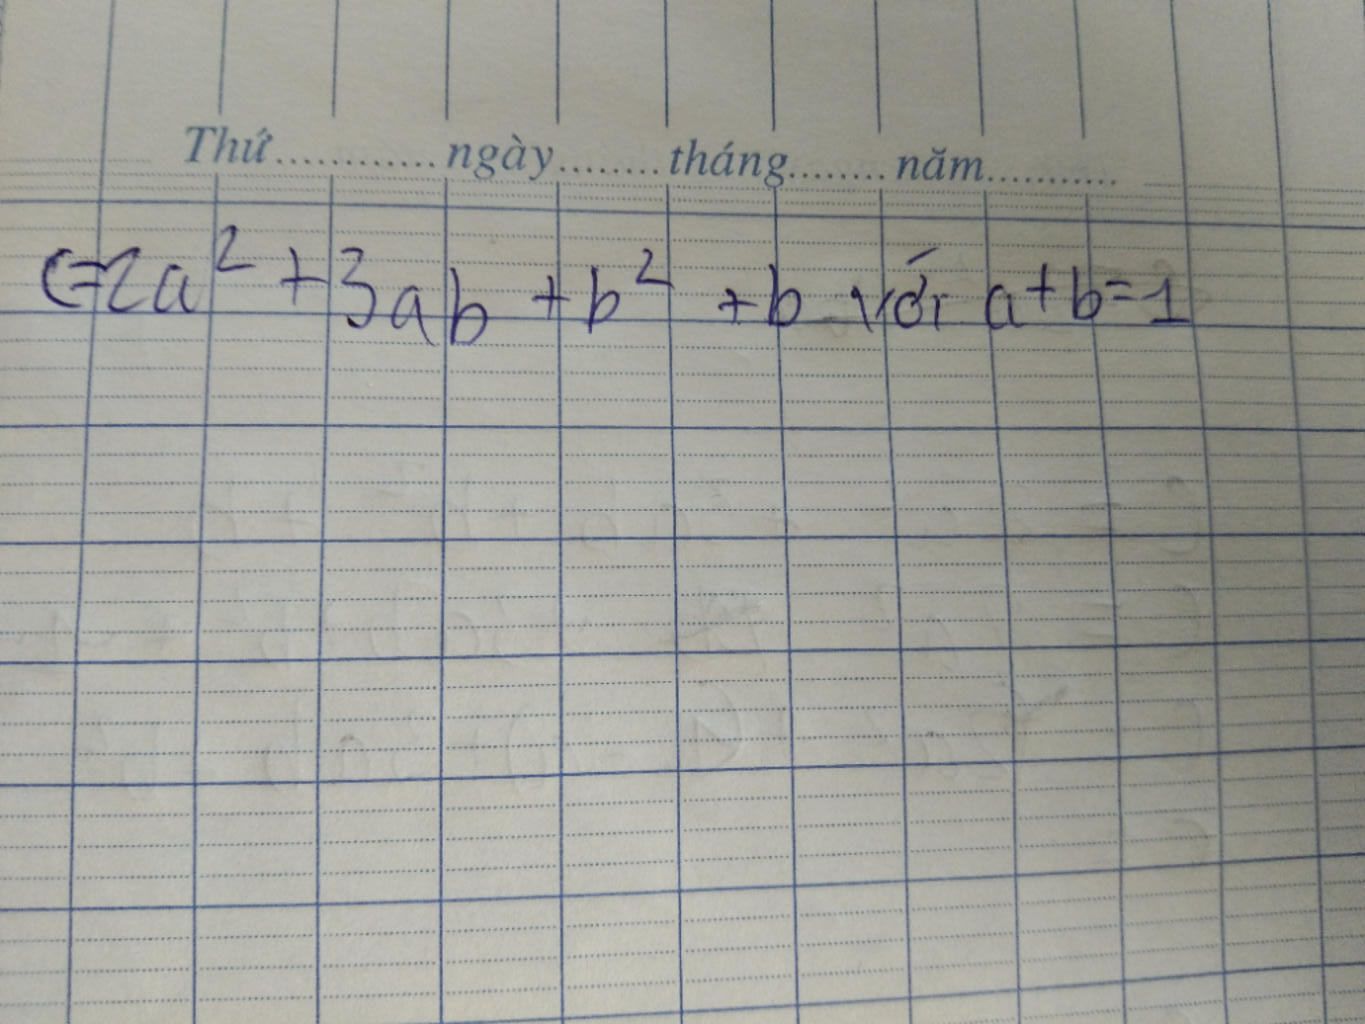 Thứ............ngày........tháng........năm...........
C=2a² + 3ab + b² + b với a+b=1